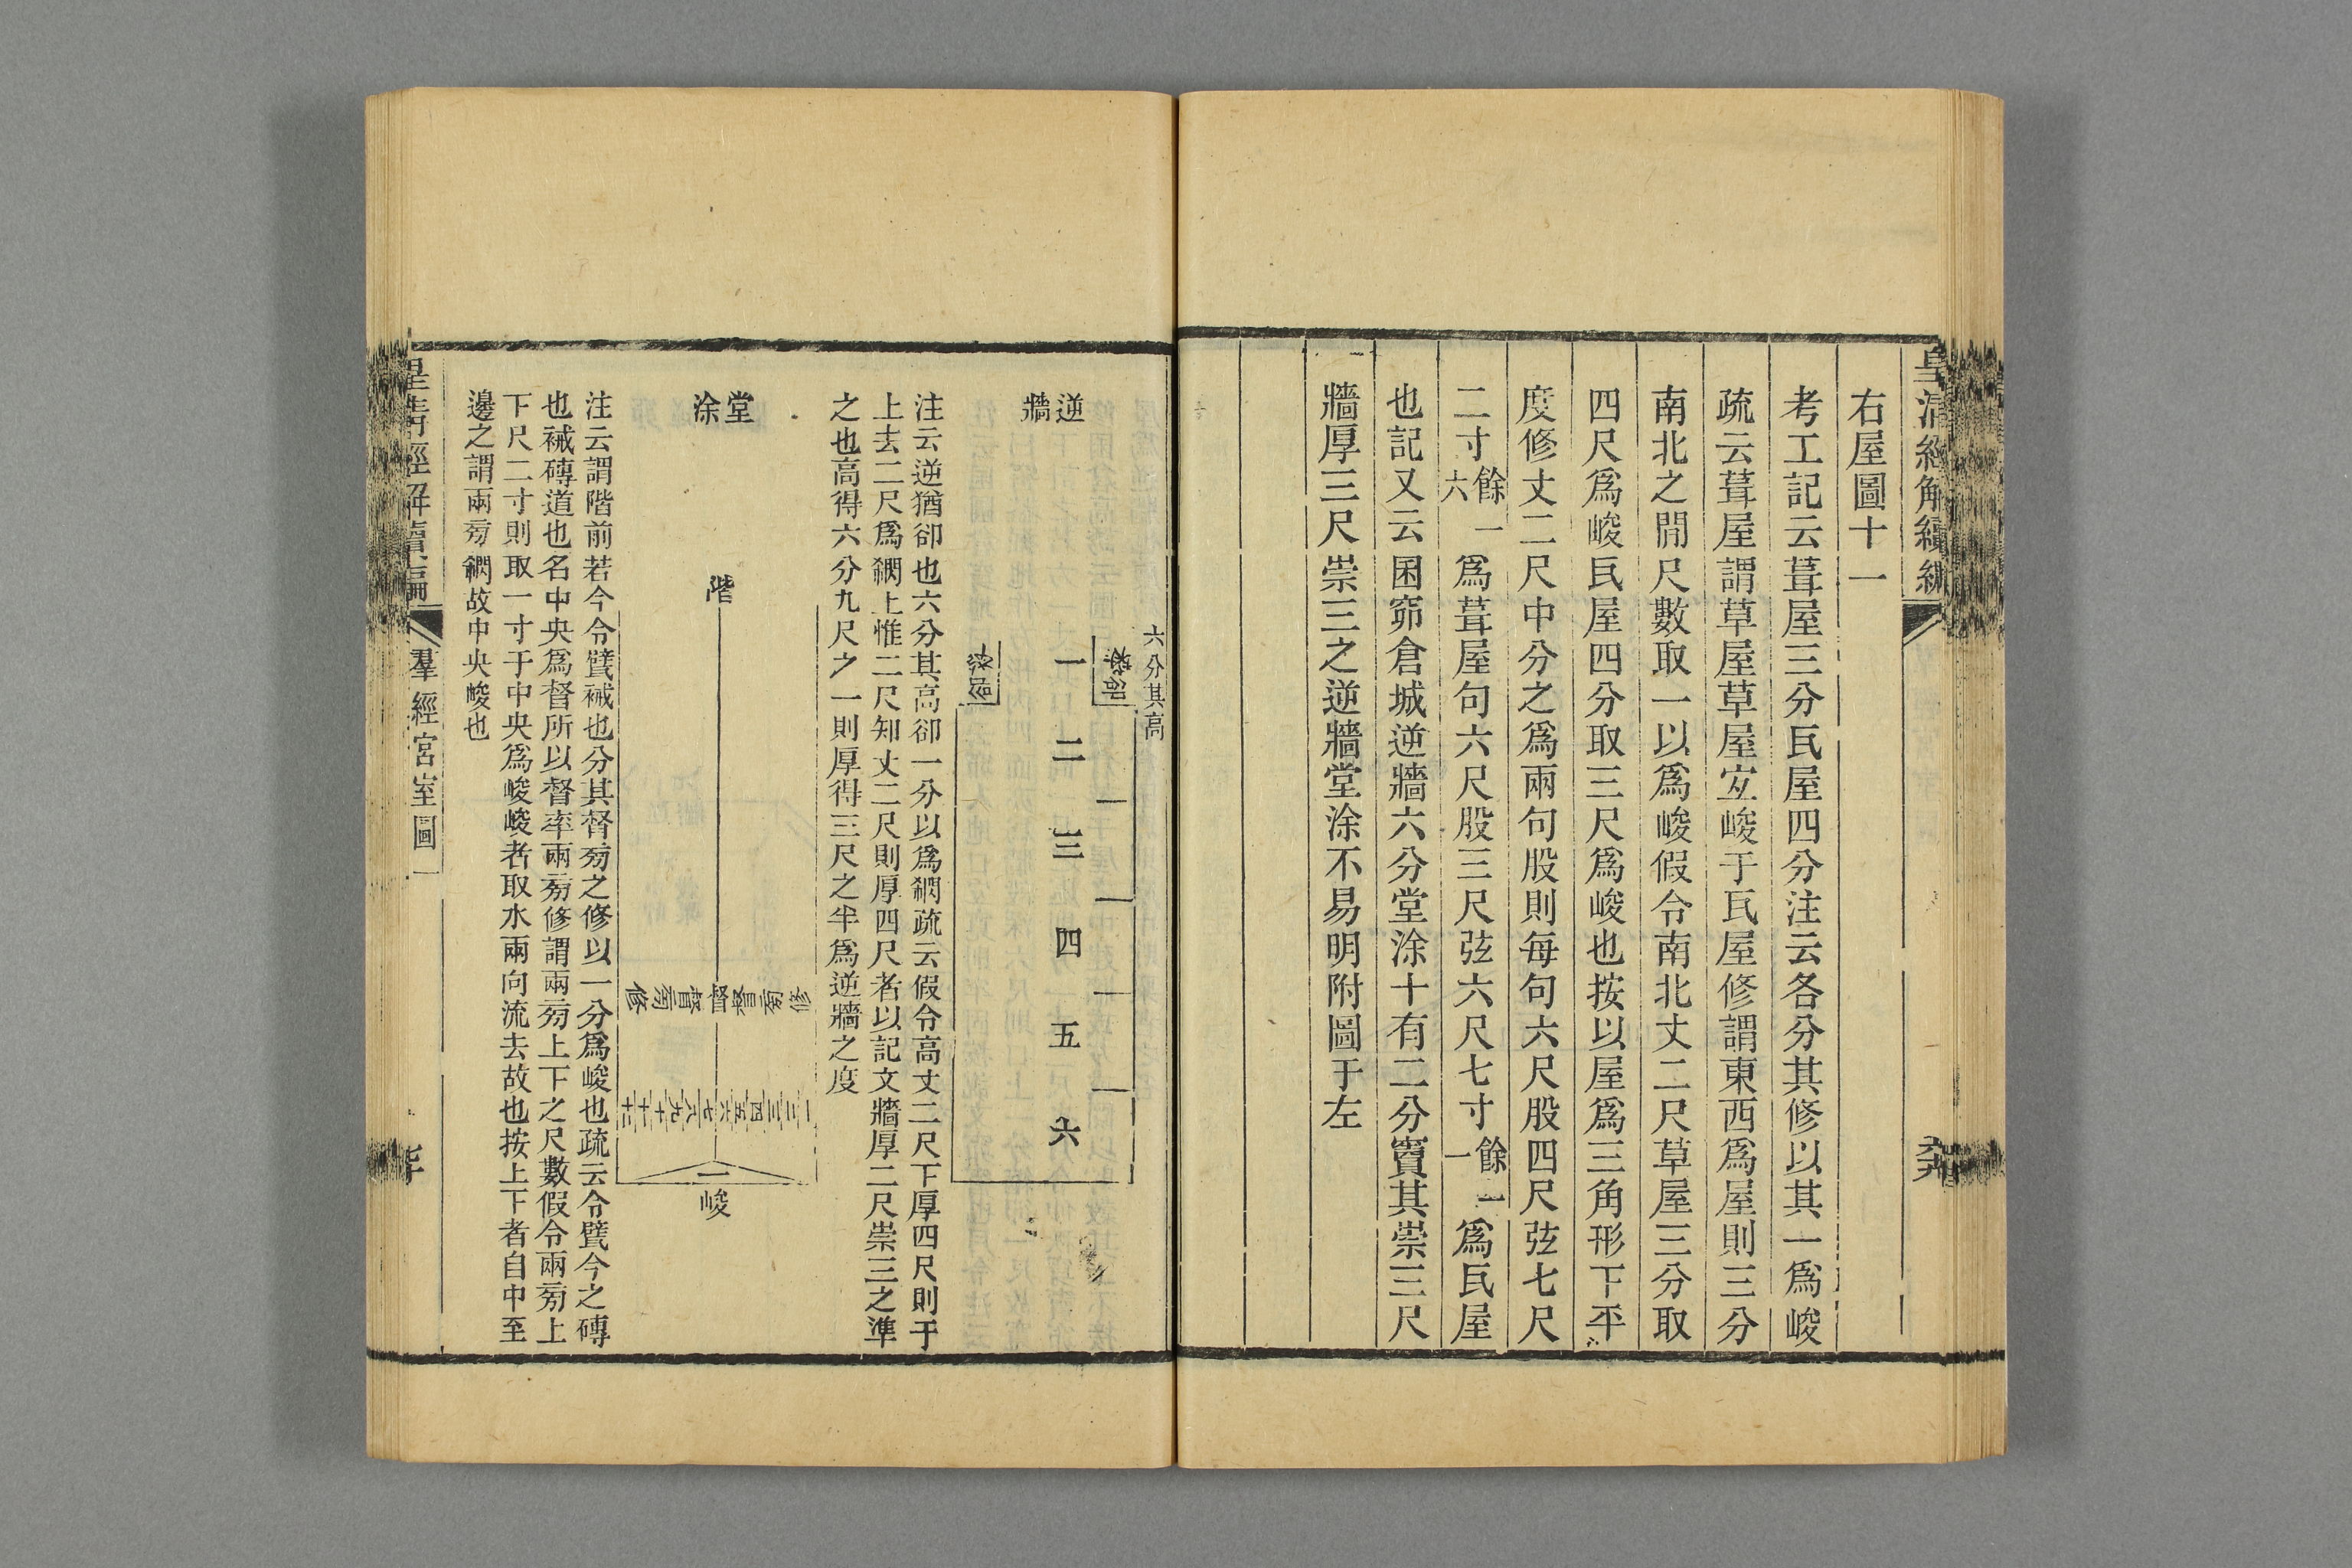 右屋圖十一
考工記云葺屋三分瓦屋四分注云各分其修以其一爲峻
疏云葺屋謂草屋草屋宜峻于瓦屋修謂東西爲屋則三分
南北之閒尺數取一以爲峻假令南北丈二尺草屋三分取
四尺爲峻瓦屋四分取三尺爲峻也按以屋爲三角形下平
度修丈二尺中分之爲兩句股則每句六尺股四尺弦七尺
二寸餘一六爲葺屋句六尺股三尺弦六尺七寸餘二一爲瓦屋
也記又云囷窌倉城逆牆六分堂涂十有二分竇其崇三尺
牆厚三尺崇三之逆牆堂涂不易明附圖于左
皇清經解續編
逆牆
六分其高
一
二
三
四
五
六
注云逆猶卻也六分其高卻一分以爲網疏云假令高丈二尺下厚四尺則于
上去二尺爲網上惟二尺知丈二尺則厚四尺者以記文牆厚三尺崇三之準
之也高得六分九尺之一則厚得三尺之半爲逆牆之度
堂涂
階
督旁修
一二三四五六七八九十
一
峻
注云謂階前若今令甓裓也分其督旁之修以一分爲峻也疏云令甓今之磚
也裓磚道也名中央爲督所以督率兩旁修謂兩旁上下之尺數假令兩旁上
下尺二寸則取一寸于中央爲峻峻者取水兩向流去故也按上下者自中至
邊之謂兩旁網故中央峻也
皇清經解續編
羣經宮室圖一